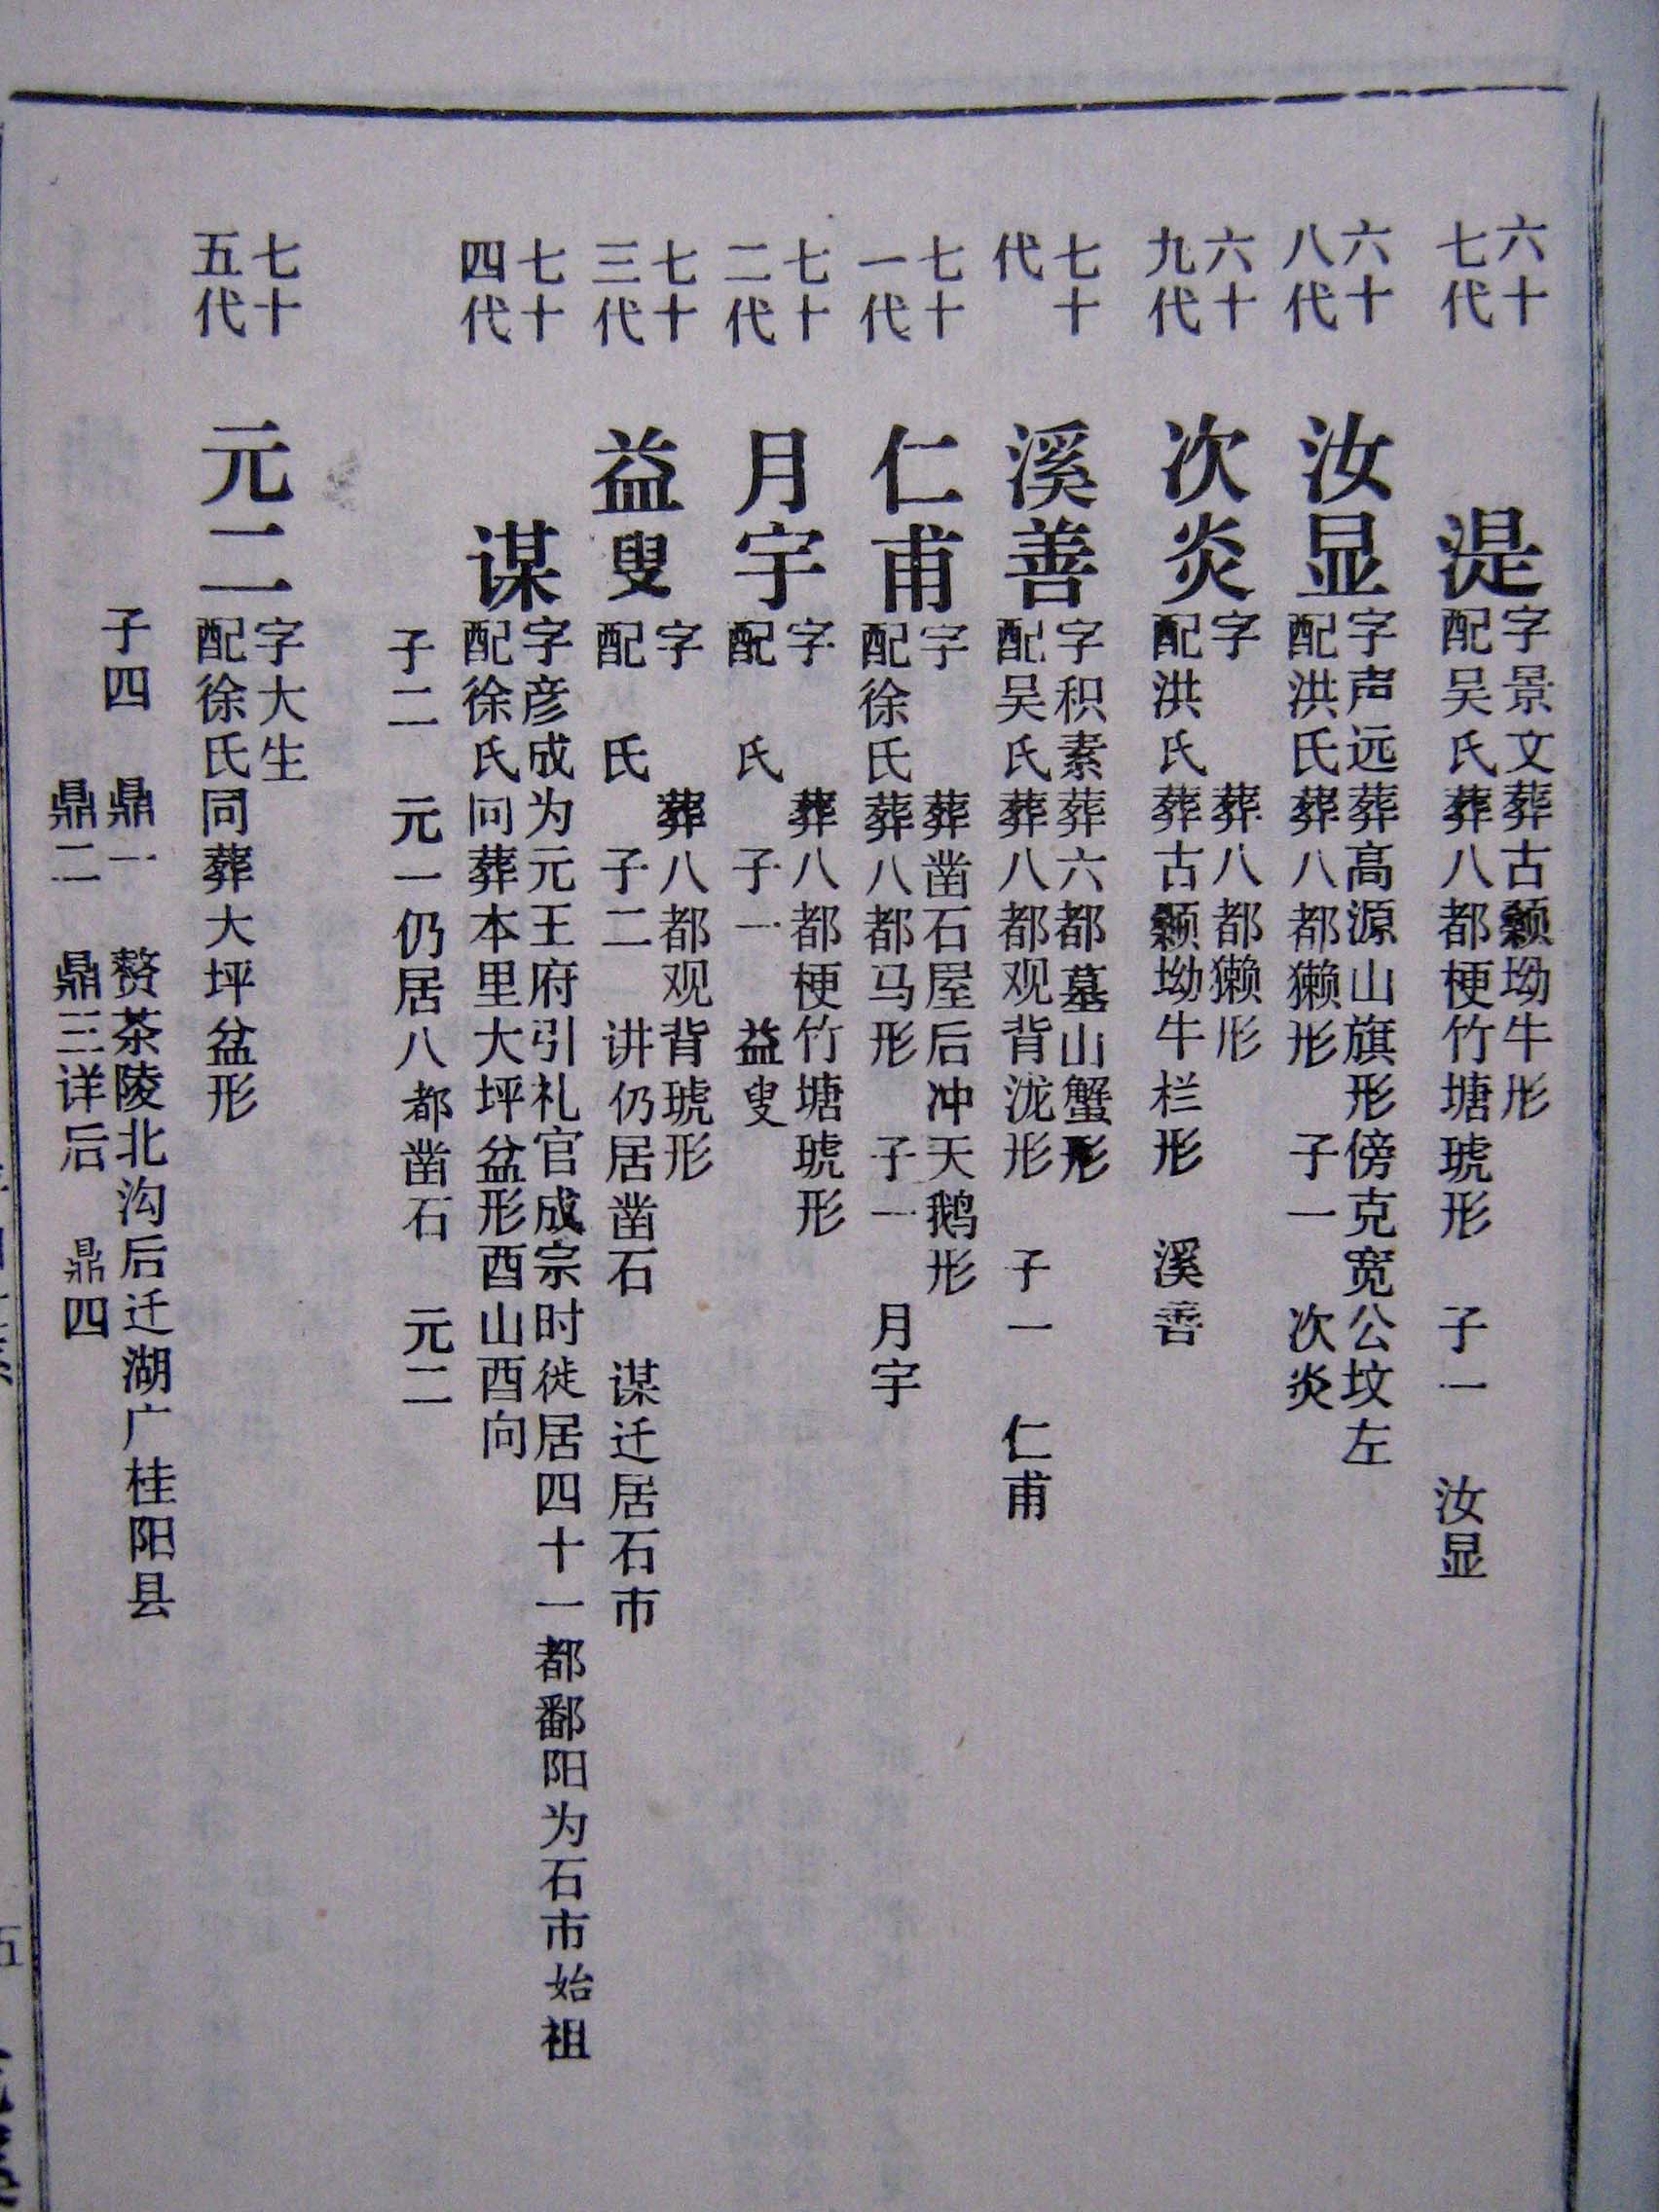 六十
七代
湜
字景文葬古颡坳牛形
配吴氏葬八都梗竹塘琥形 子一 汝显
六十
八代
汝显
字声远葬高源山旗形傍克宽公坟左
配洪氏葬八都獭形 子一 次炎
六十
九代
次炎
字 葬八都獭形
配洪氏葬古颡坳牛栏形 溪善
七十
代
溪善
字积素葬六都墓山蟹形
配吴氏葬八都观背泷形 子一 仁甫
七十
一代
仁甫
字 葬凿石屋后冲天鹅形
配徐氏葬八都马形 子一 月宇
七十
二代
月宇
字 葬八都梗竹塘琥形
配 氏 子一 益叟
七十
三代
益叟
字 葬八都观背琥形
配 氏 子二 讲仍居凿石 谋迁居石市
七十
四代
谋
字彦成为元王府引礼官成宗时徙居四十一都鄱阳为石市始祖
配徐氏同葬本里大坪盆形酉山酉向
子二 元一仍居八都凿石 元二
七十
五代
元二
字大生
配徐氏同葬大坪盆形
子四 鼎一 赘茶陵北沟后迁湖广桂阳县
鼎二 鼎三详后 鼎四
五